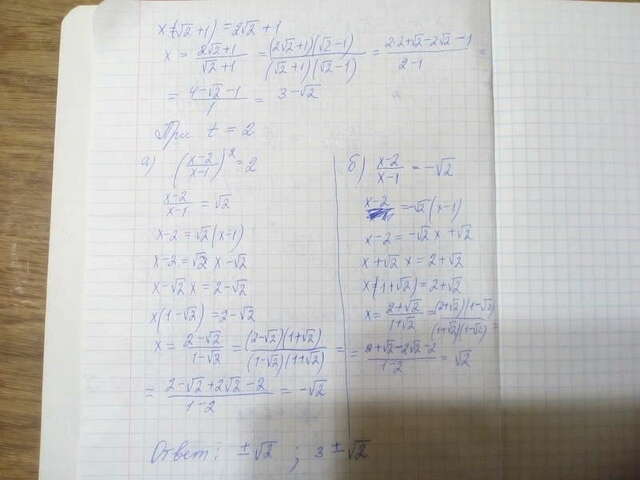 x(√2+1) = 2√2+1
x = (2√2+1)/(√2+1) = ((2√2+1)(√2-1))/((√2+1)(√2-1)) = (2·2+√2-2√2-1)/(2-1) =
= (4-√2-1)/1 = 3-√2
При t = 2
а) ((x-2)/(x-1))² = 2
(x-2)/(x-1) = √2
x-2 = √2(x-1)
x-2 = √2 x - √2
x-√2 x = 2-√2
x(1-√2) = 2-√2
x = (2-√2)/(1-√2) = ((2-√2)(1+√2))/((1-√2)(1+√2)) =
= (2-√2+2√2-2)/(1-2) = -√2
б) (x-2)/(x-1) = -√2
x-2 = -√2(x-1)
x-2 = -√2 x + √2
x+√2 x = 2+√2
x(1+√2) = 2+√2
x = (2+√2)/(1+√2) = ((2+√2)(1-√2))/((1+√2)(1-√2)) =
= (2+√2-2√2-2)/(1-2) = √2
Ответ: ±√2 ; 3±√2